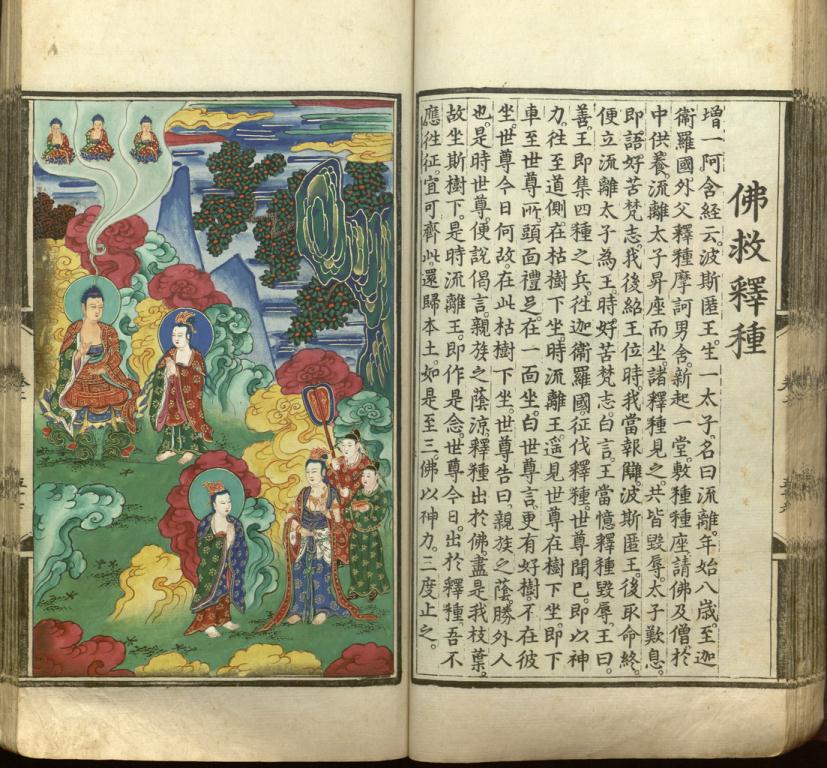 佛救釋種
增一阿含経云。波斯匿王。生一太子。名曰流離。年始八歲。至迦
衛羅國外父釋種摩訶男舍。新起一堂。敷種種座。請佛及僧。於
中供養。流離太子昇座而坐。諸釋種見之。共皆毀辱。太子歎息。
即語好苦梵志。我後紹王位時。我當報讎。波斯匿王。後取命終。
便立流離太子為王。時好苦梵志白言。王當憶釋種毀辱。王曰。
善。王即集四種之兵。徃迦衛羅國。征伐釋種。世尊聞已。即以神
力。徃至道側。在枯樹下坐。時流離王。遥見世尊在樹下坐。即下
車至世尊所。頭面禮足。在一面坐。白世尊言。更有好樹。不在彼
坐。世尊今日何故。在此枯樹下坐。世尊告曰。親族之䕃。勝外人
也。是時世尊。便說偈言。親族之䕃涼。釋種出於佛。盡是我枝葉。
故坐斯樹下。是時流離王。即作是念。世尊今日。出於釋種。吾不
應徃征。宜可齊此。還歸本土。如是至三。佛以神力。三度止之。